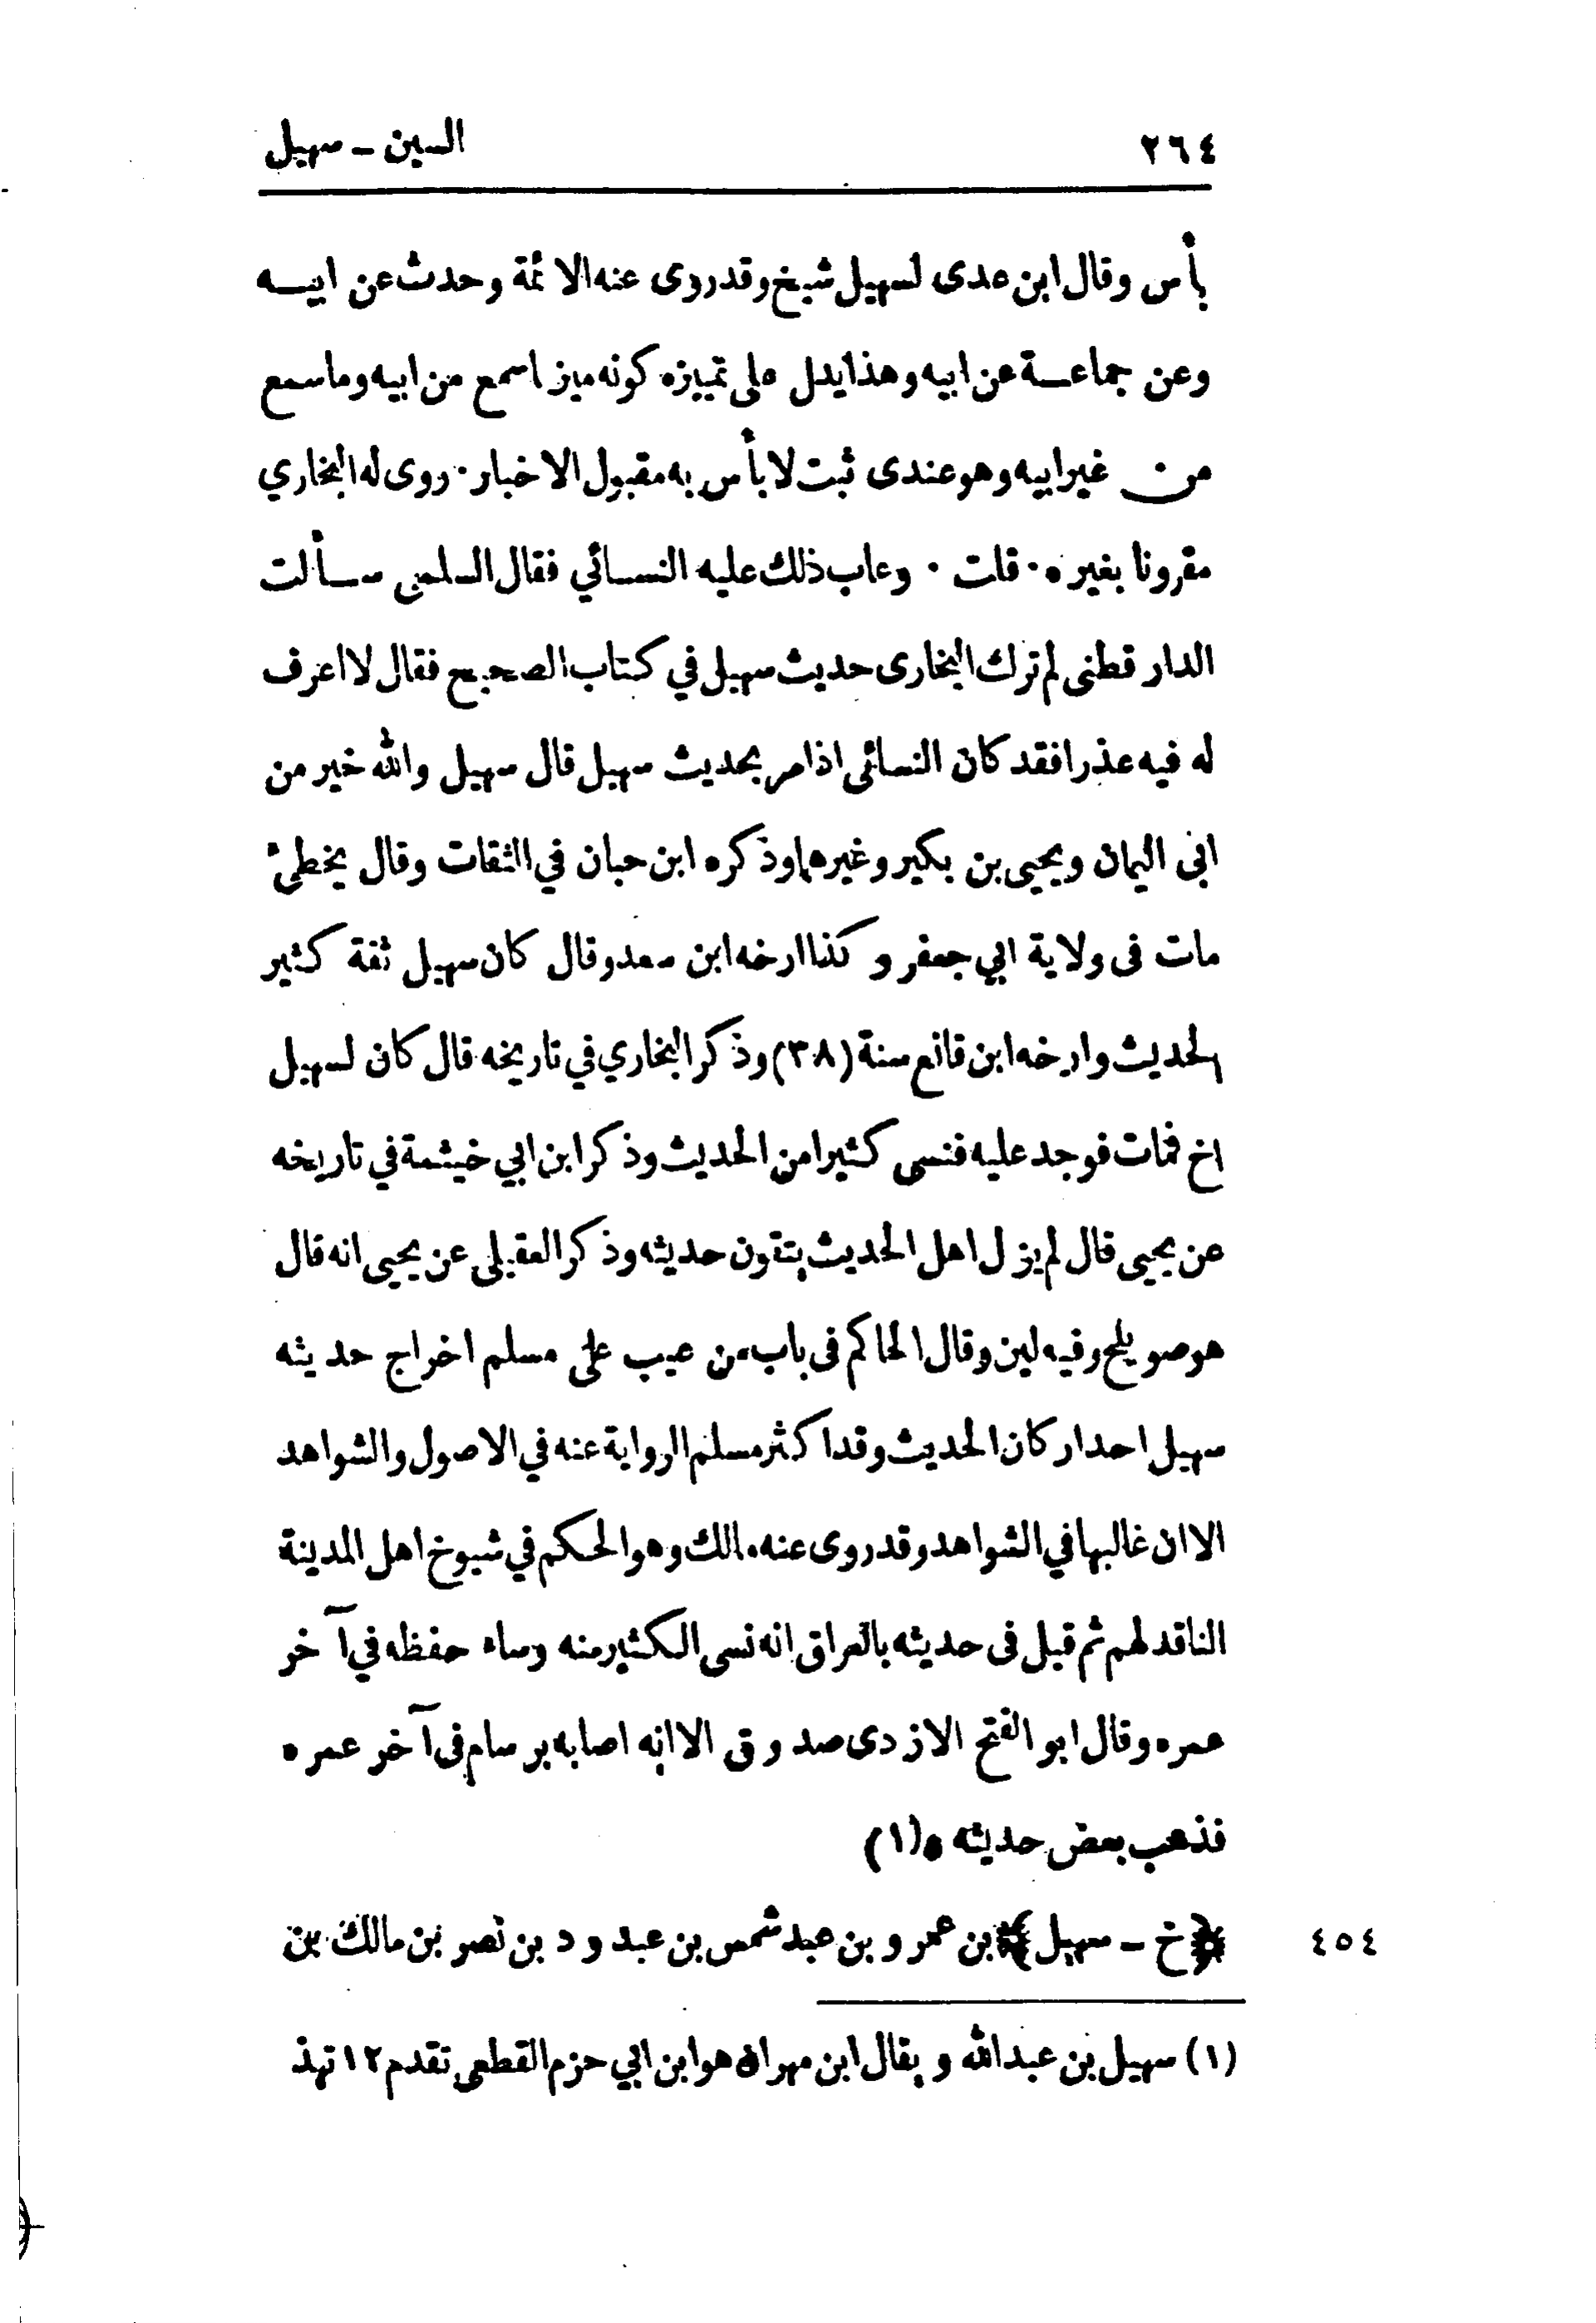 ٢٦٤ السين - سهيل
بأس وقال ابن عدى لسهيل شيخ وقد روى عنه الائمة وحدث عن ابيه
وعن جماعة عن ابيه وهذا يدل على تمييزه كونه ميز اسمع من ابيه وما سمع
من غير ابيه وهو عندى ثبت لا بأس به مقبول الاخبار · روى له البخاري
مقرونا بغيره · قلت · وعاب ذلك عليه النسائي فقال السلمى سألت
الدار قطنى لم ترك البخارى حديث سهيل في كتاب الصحيح فقال لا اعرف
له فيه عذرا فقد كان النسائى اذا مر بحديث سهيل قال سهيل والله خير من
ابى اليمان ويحيى بن بكير وغيرهما وذكره ابن حبان في الثقات وقال يخطئ
مات فى ولاية ابي جعفر وكذا ارخه ابن سعد وقال كان سهيل ثقة كثير
الحديث وارخه ابن قانع سنة (٣٨) وذكر البخاري في تاريخه قال كان لسهيل
اخ فمات فوجد عليه فنسى كثيرا من الحديث وذكر ابن ابي خيثمة في تاريخه
عن يحيى قال لم يزل اهل الحديث يتقون حديثه وذكر العقيلى عن يحيى انه قال
هو صويلح وفيه لين وقال الحاكم فى باب من عيب على مسلم اخراج حديثه
سهيل احد اركان الحديث وقد اكثر مسلم الرواية عنه في الاصول والشواهد
الا ان غالبها في الشواهد وقد روى عنه مالك وهو الحكم في شيوخ اهل المدينة
الناقد لهم ثم قيل فى حديثه بالعراق انه نسى الكثير منه وساء حفظه في آخر
عمره وقال ابو الفتح الازدى صدوق الا انه اصابه برسام فى آخر عمره
فذهب بعض حديثه ٥ (١)
٤٥٤ ﴿خ - سهيل﴾ بن عمرو بن عبد شمس بن عبد ود بن نصر بن مالك بن
(١) سهيل بن عبدالله ويقال ابن مهران هو ابن ابي حزم القطعى تقدم ١٢ تهذ